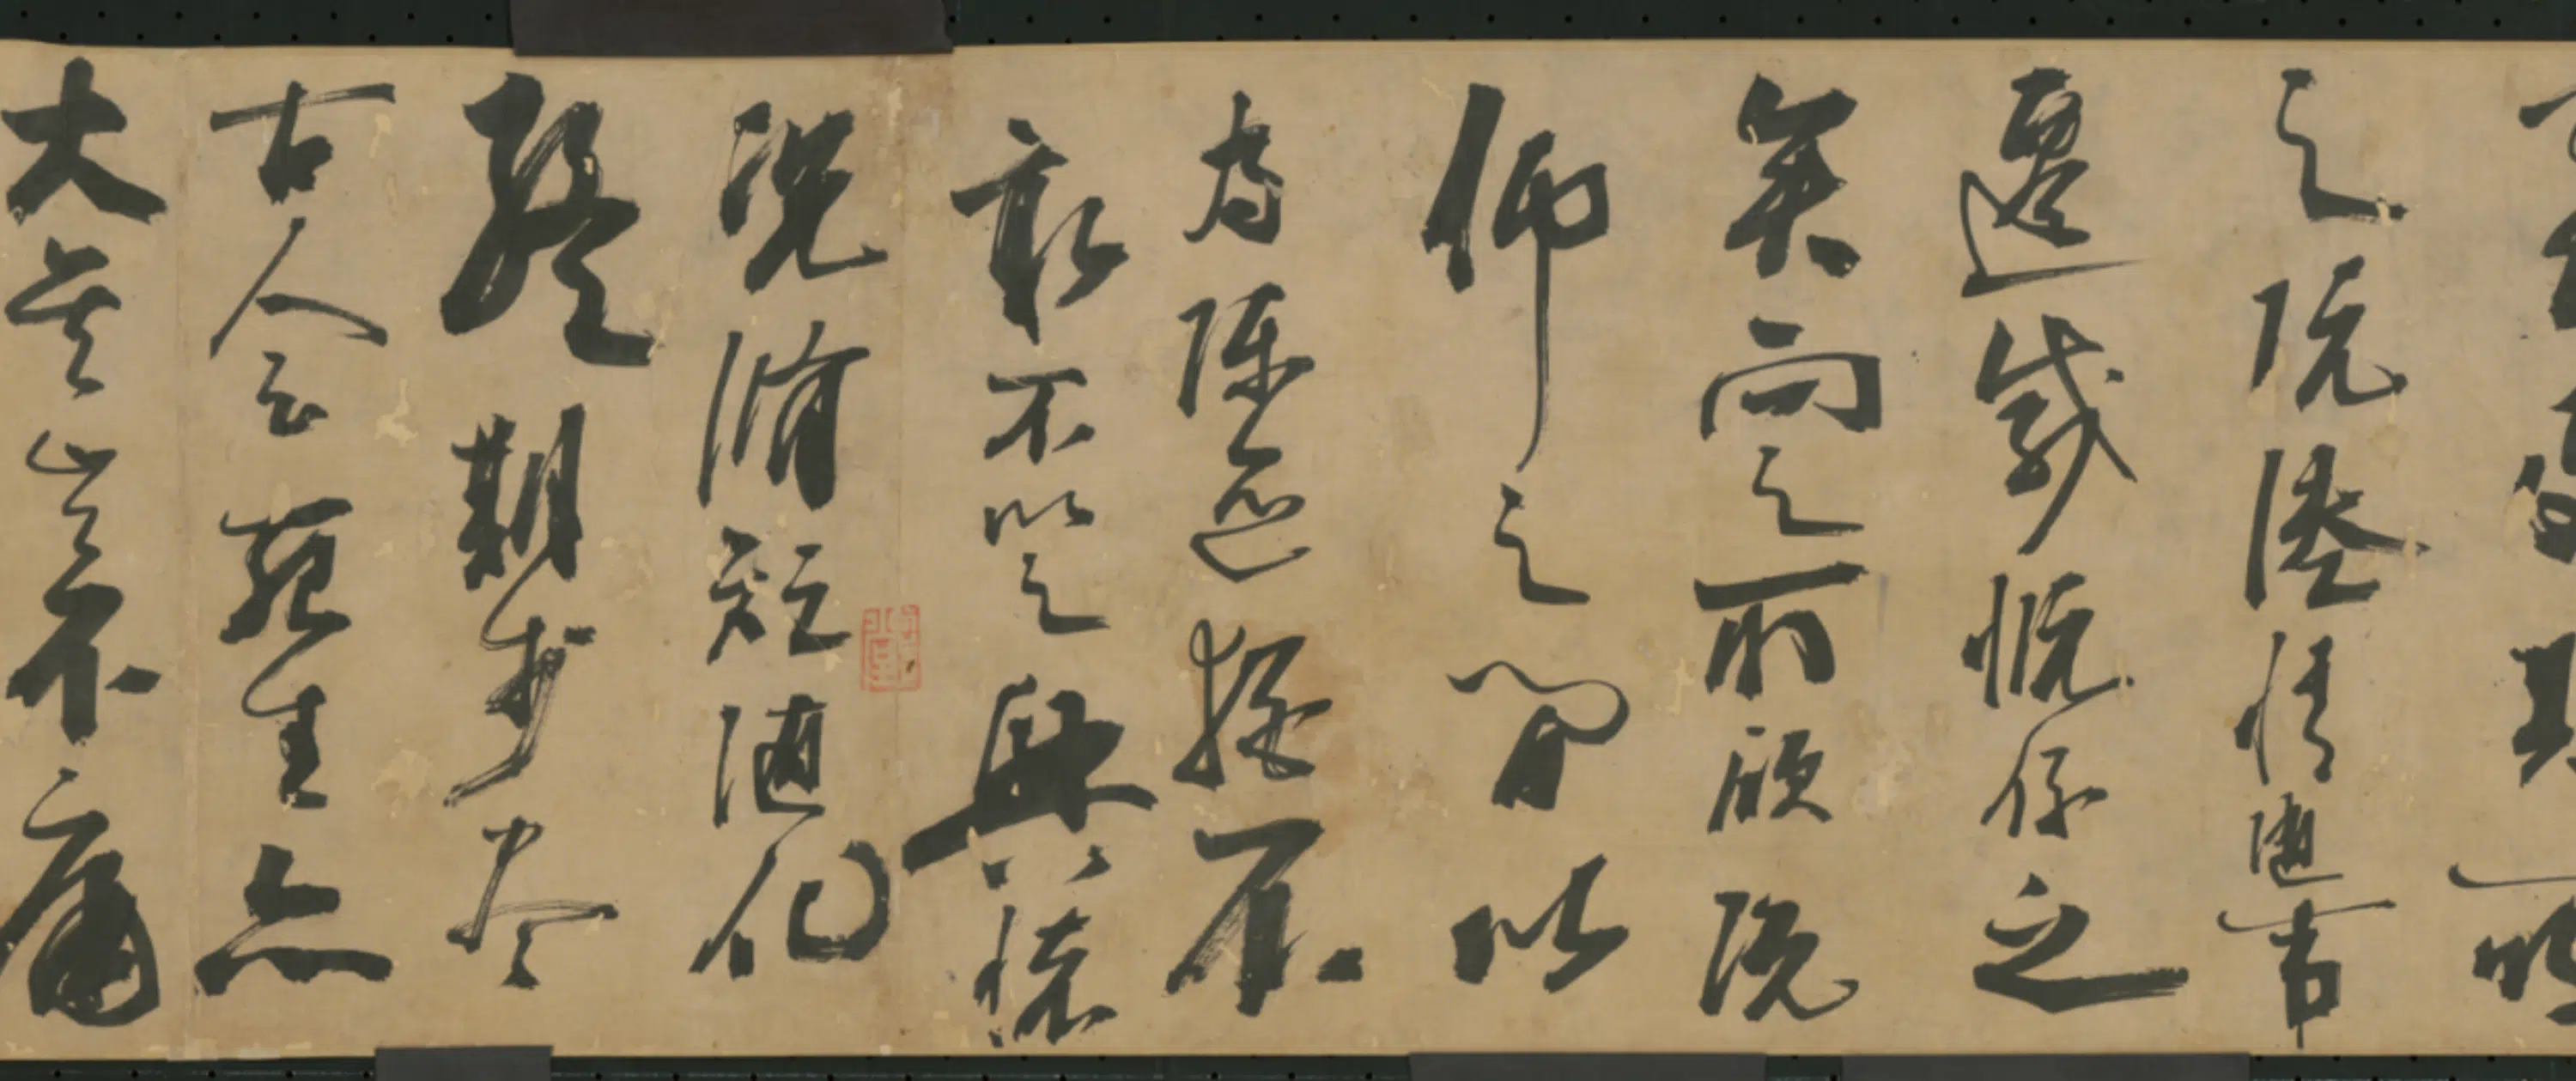 之既倦情隨事
遷感慨係之
矣向之所欣俛
仰之間以
為陳迹猶不
能不以之興懷
況脩短隨化
終期於盡
古人云死生亦
大矣豈不痛